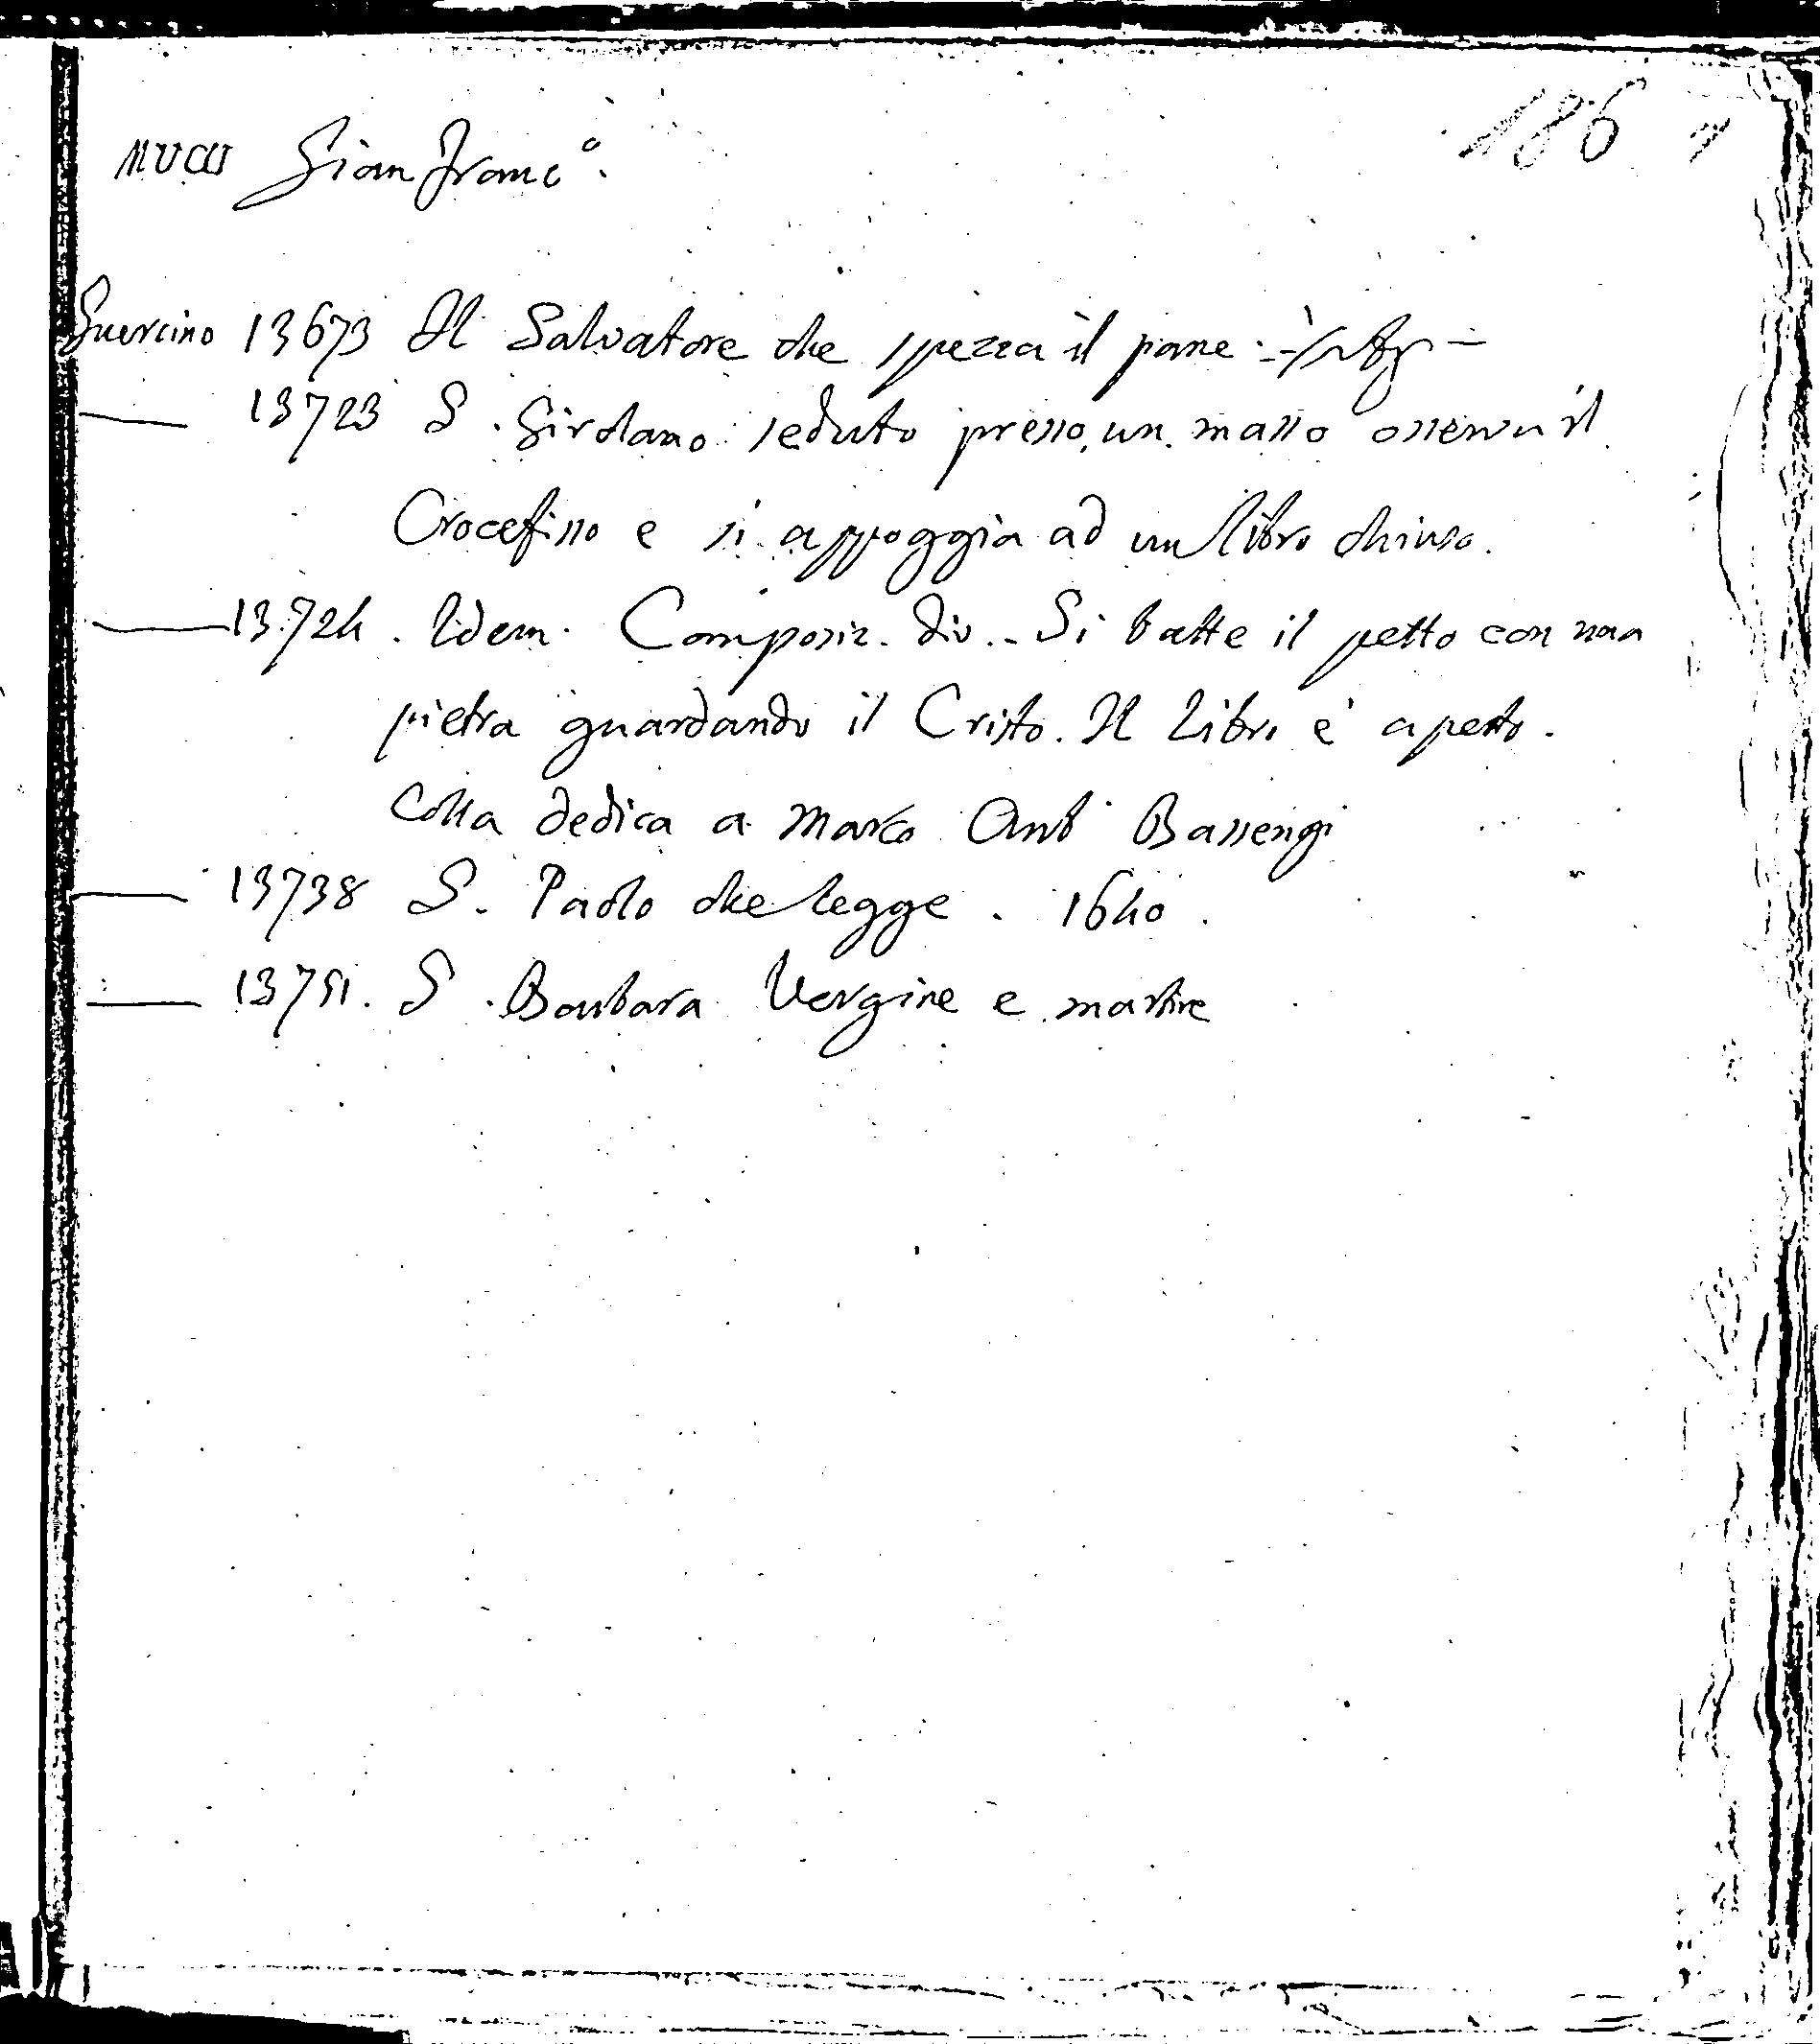 186
MUCCI Gian Franc°.
Guercino 13673 Il Salvatore che spezza il pane
— 13723 S. Girolamo seduto presso un masso osserva il
Crocefisso e si appoggia ad un libro chiuso.
— 13724. Idem. Composiz. div. - Si batte il petto con una
pietra guardando il Cristo. Il libro è aperto.
Colla dedica a Marco Ant Bassengi
— 13738 S. Paolo che legge. 1640.
— 13751. S. Barbara Vergine e martire